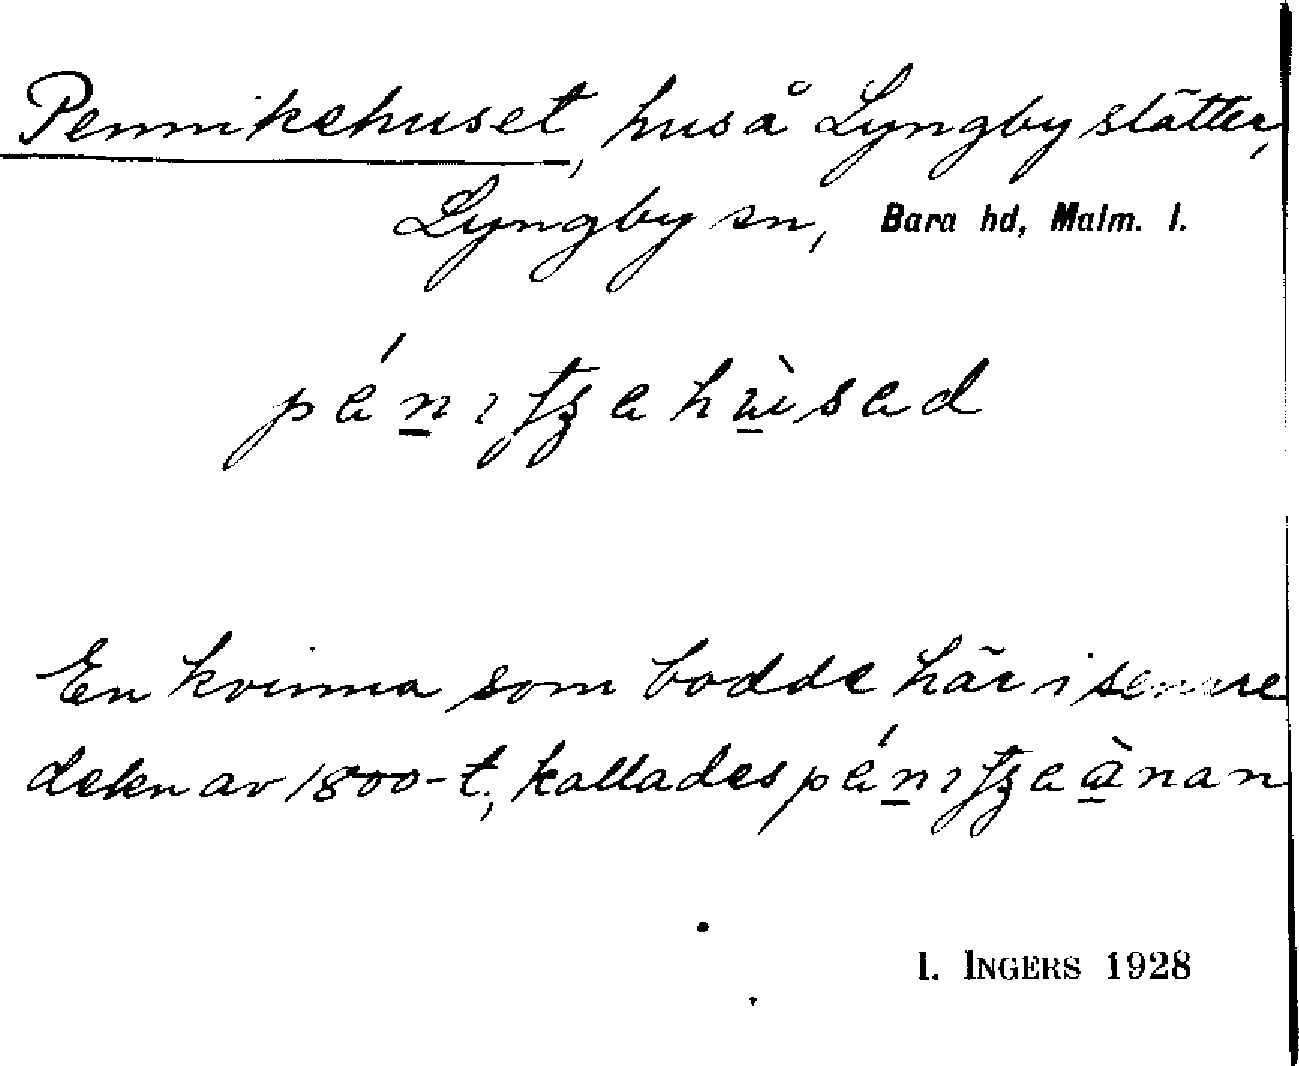 Pennikehuset, hus å Lyngby slätter,
Lyngby sn, Bara hd, Malm. l.
En kvinna som bodde här i senare
delen av 1800-t., kallades
I. INGERS 1928